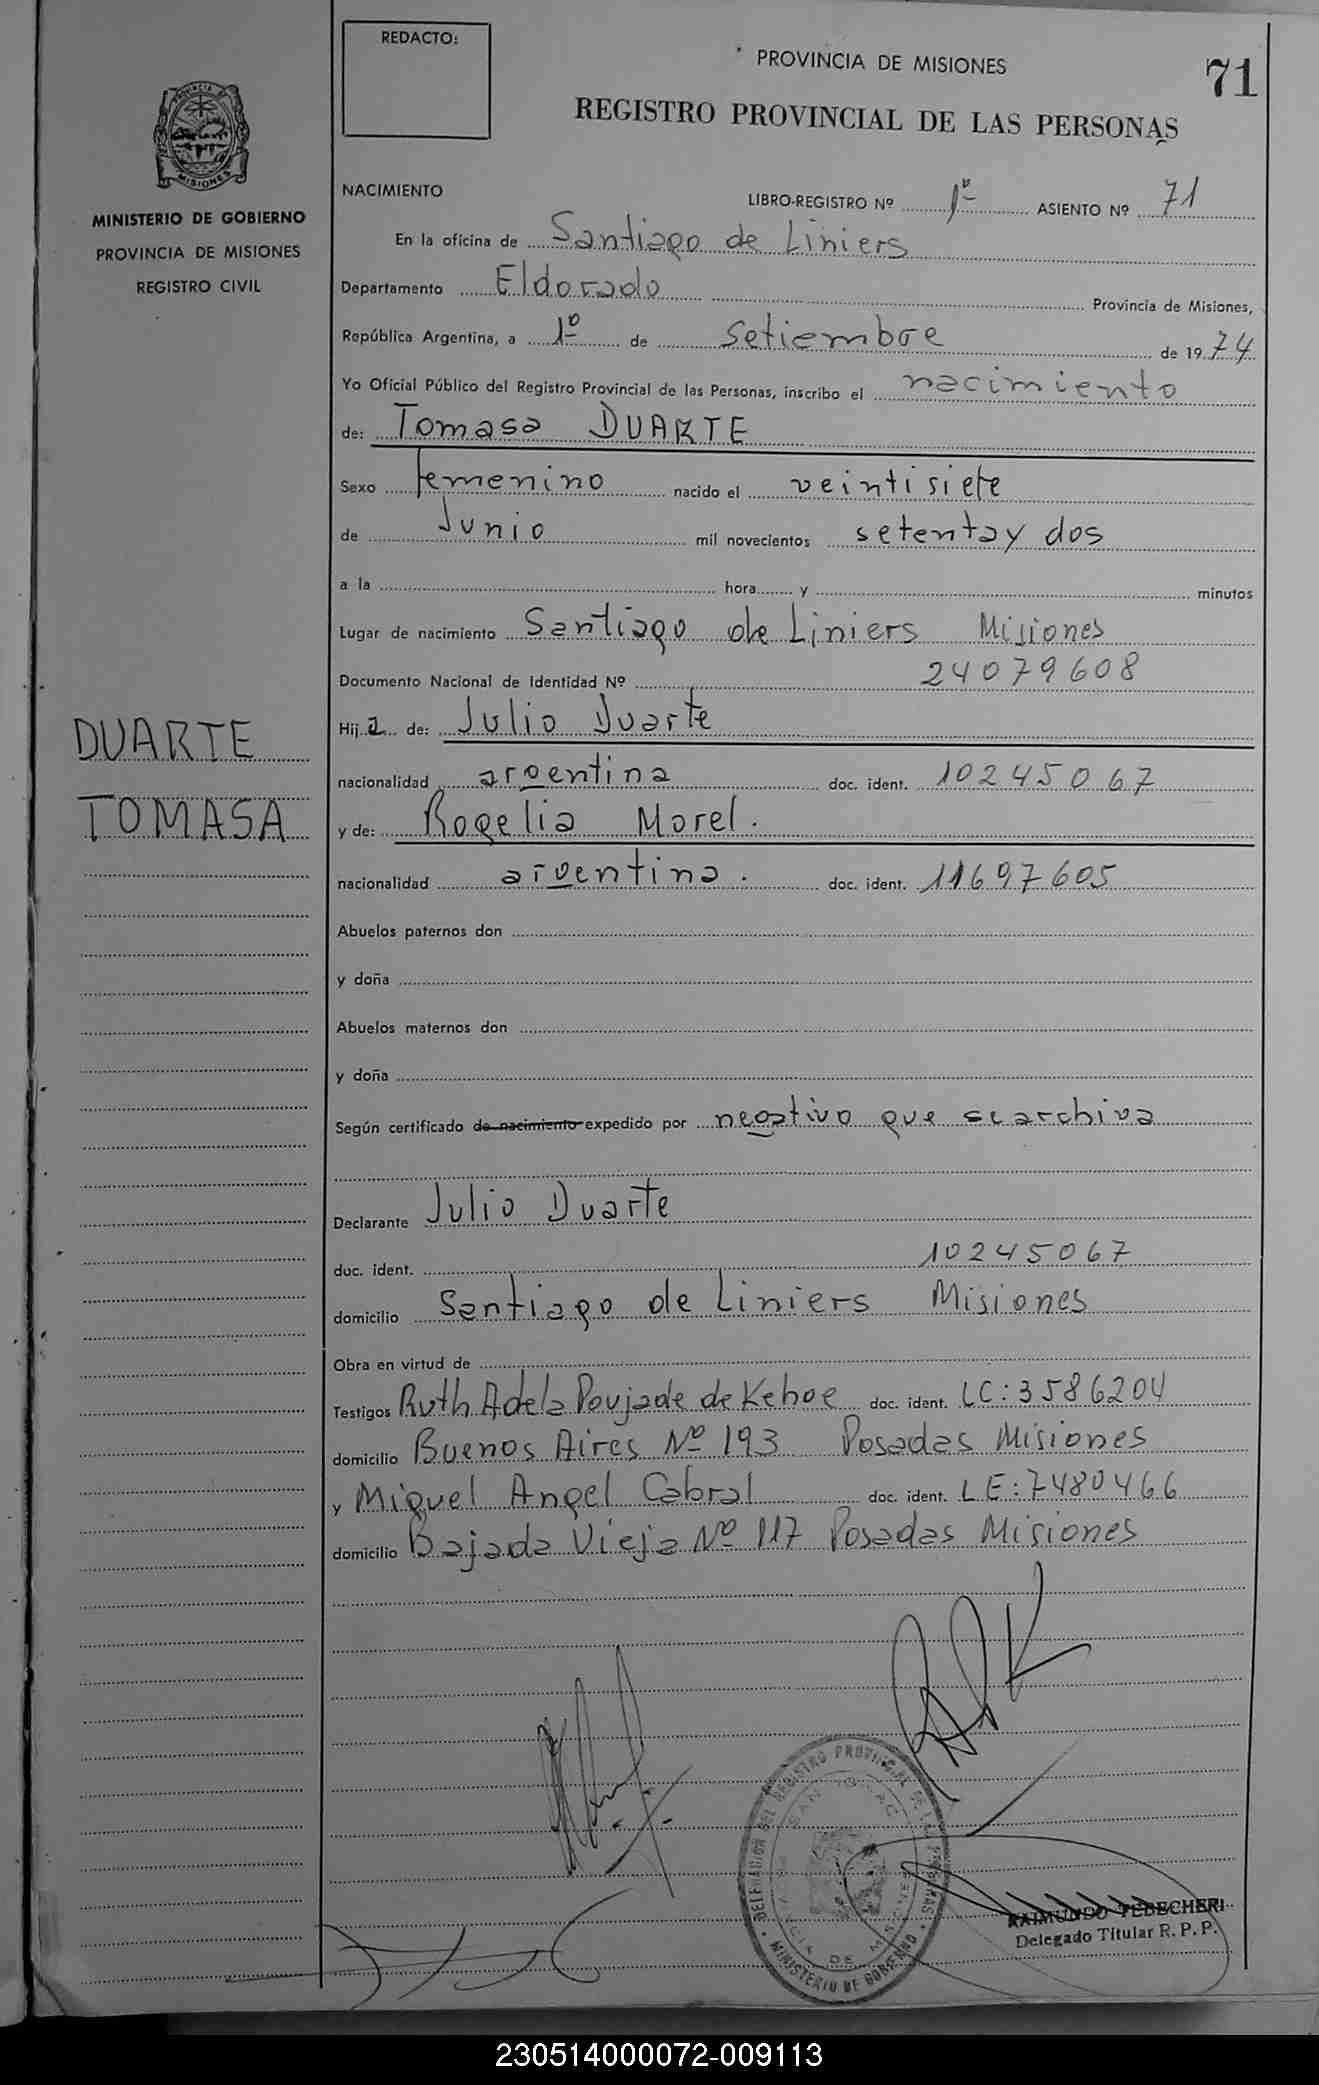 REDACTO:
PROVINCIA DE MISIONES
71
REGISTRO PROVINCIAL DE LAS PERSONAS
MISIONES
MINISTERIO DE GOBIERNO
PROVINCIA DE MISIONES
REGISTRO CIVIL
NACIMIENTO
LIBRO-REGISTRO Nº 1º ASIENTO Nº 71
En la oficina de Santiago de Liniers
Departamento Eldorado Provincia de Misiones,
República Argentina, a 1º de Setiembre de 1974
Yo Oficial Público del Registro Provincial de las Personas, inscribo el nacimiento
de: Tomasa DUARTE
Sexo femenino nacido el veintisiete
de Junio mil novecientos setenta y dos
a la hora y minutos
Lugar de nacimiento Santiago de Liniers Misiones
Documento Nacional de Identidad Nº 24079608
Hija de: Julio Duarte
nacionalidad argentina doc. ident. 10245067
y de: Rogelia Morel.
nacionalidad argentina. doc. ident. 11697605
DUARTE
TOMASA
Abuelos paternos don
y doña
Abuelos maternos don
y doña
Según certificado de nacimiento expedido por negativo que se archiva
Declarante Julio Duarte
doc. ident. 10245067
domicilio Santiago de Liniers Misiones
Obra en virtud de
Testigos Ruth Adela Poujade de Kehoe doc. ident. LC: 3586204
domicilio Buenos Aires Nº 193 Posadas Misiones
y Miguel Angel Cabral doc. ident. LE: 7480466
domicilio Bajada Vieja Nº 117 Posadas Misiones
DELEGACION DEL REGISTRO PROVINCIAL DE LAS PERSONAS
MINISTERIO DE GOBIERNO
RAIMUNDO TEBECHERI
Delegado Titular R. P. P.
230514000072-009113